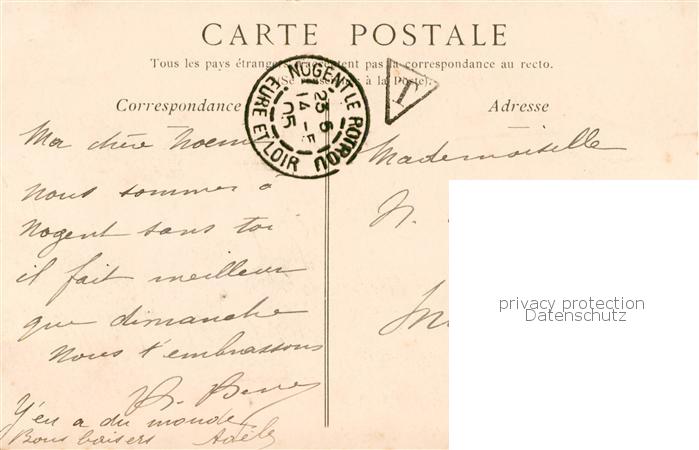 CARTE POSTALE
Tous les pays étrangers n'acceptent pas la correspondance au recto.
(Se renseigner à la Poste).
Correspondance
Adresse
NOGENT LE ROTROU
23 6
14 -E
05
EURE ET LOIR
T
Ma chère Noemi
nous sommes à
Nogent sans toi
il fait meilleur
que dimanche
Nous t'embrassons
Y'en a du monde
Bons baisers Adèle
Mademoiselle
N.
privacy protection
Datenschutz